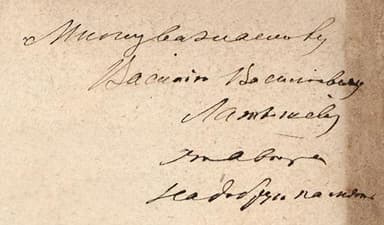 Многоуважаемому
Василію Васильевичу
Латышеву
отъ автора
на добрую память